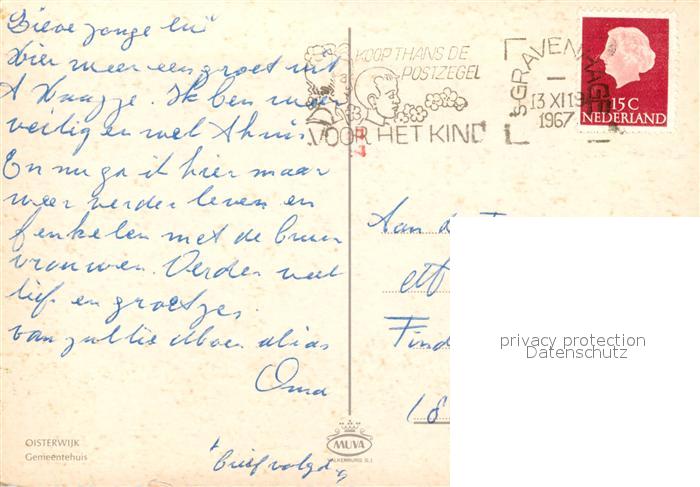 Lieve jonge lui
Hier weer een groet uit
't Haagje. Ik ben weer
veilig en wel thuis.
En nu ga ik hier maar
weer verder leven en
met de buur
vrouwen. Verder veel
liefs en groetjes.
van jullie Moe alias
Oma
OISTERWIJK
Gemeentehuis
brief volgt
MUVA
VALKENBURG (L.)
KOOP THANS DE
POSTZEGEL
VOOR HET KIND
'S GRAVENHAGE
13 XI 19
1967
15 C
NEDERLAND
Aan de
privacy protection
Datenschutz